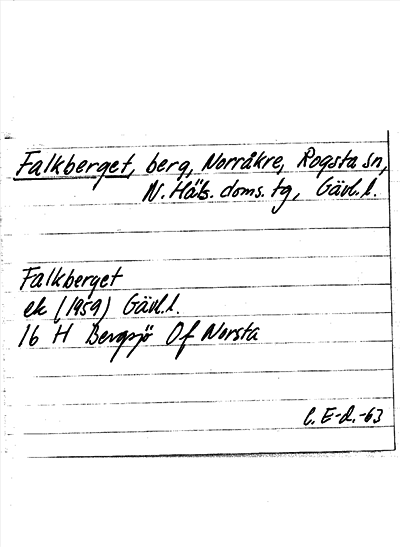 Falkberget, berg, Norråkre, Rogsta sn,
N. Häls. doms. tg, Gävl.l.
Falkberget
ek (1959) Gävl.l.
16 H Bergsjö Of Norsta
C. E-d.-63